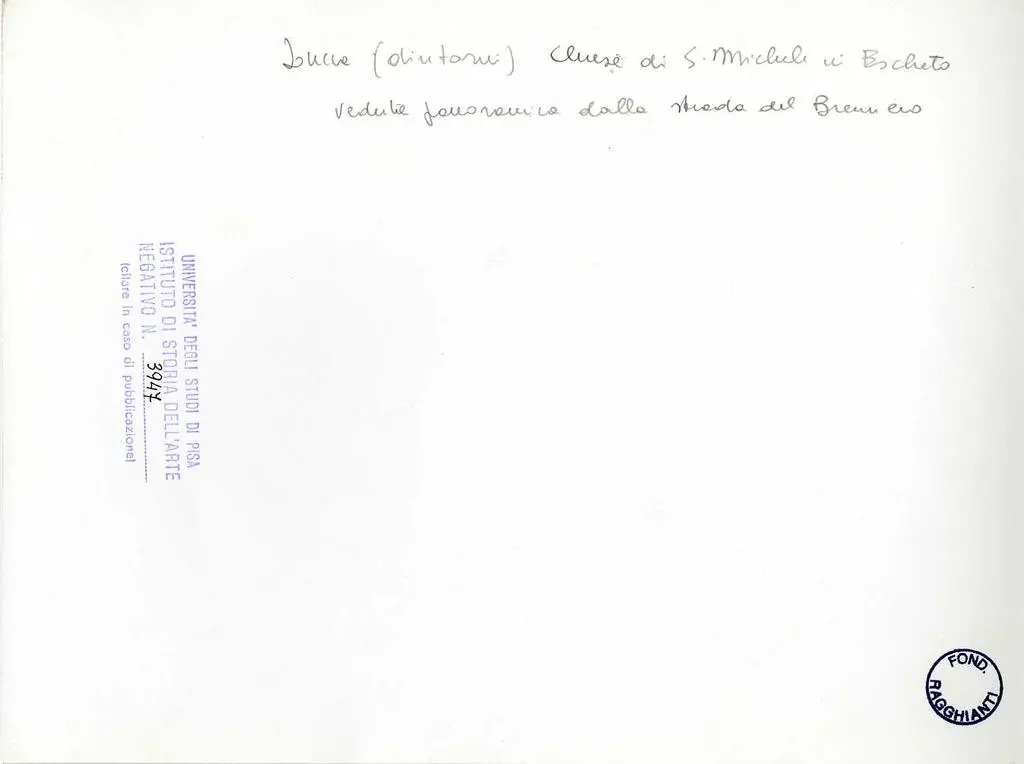 Lucca (dintorni) Chiesa di S. Michele in Escheto
veduta panoramica dalla strada del Brennero
UNIVERSITA' DEGLI STUDI DI PISA
ISTITUTO DI STORIA DELL'ARTE
NEGATIVO N. 3947
(citare in caso di pubblicazione)
FOND.
RAGGHIANTI